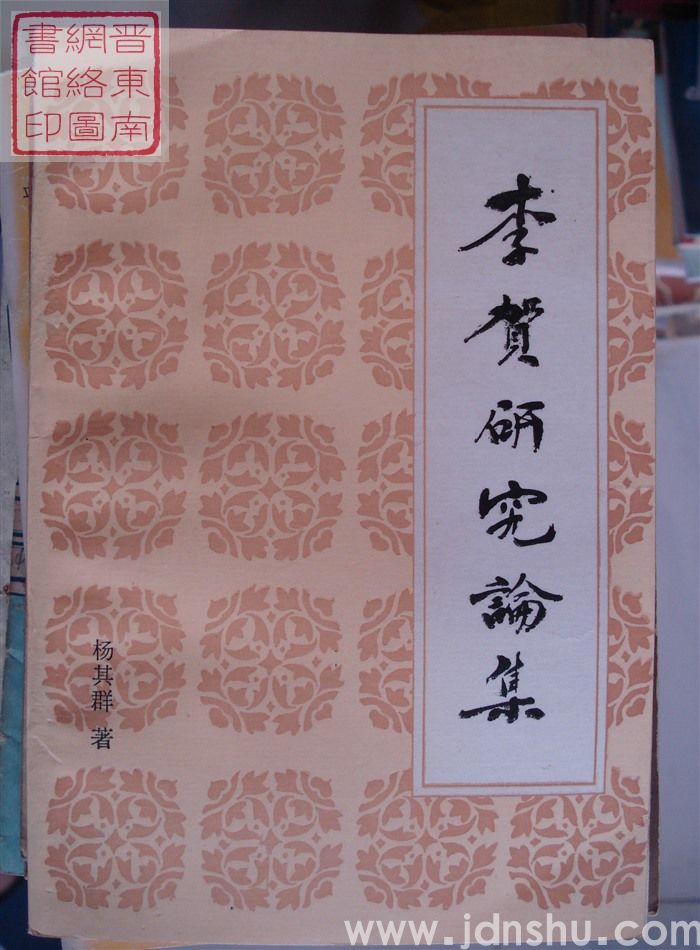 晋東南
網絡圖
書館印
李賀研究論集
杨其群 著
www.jdnshu.com